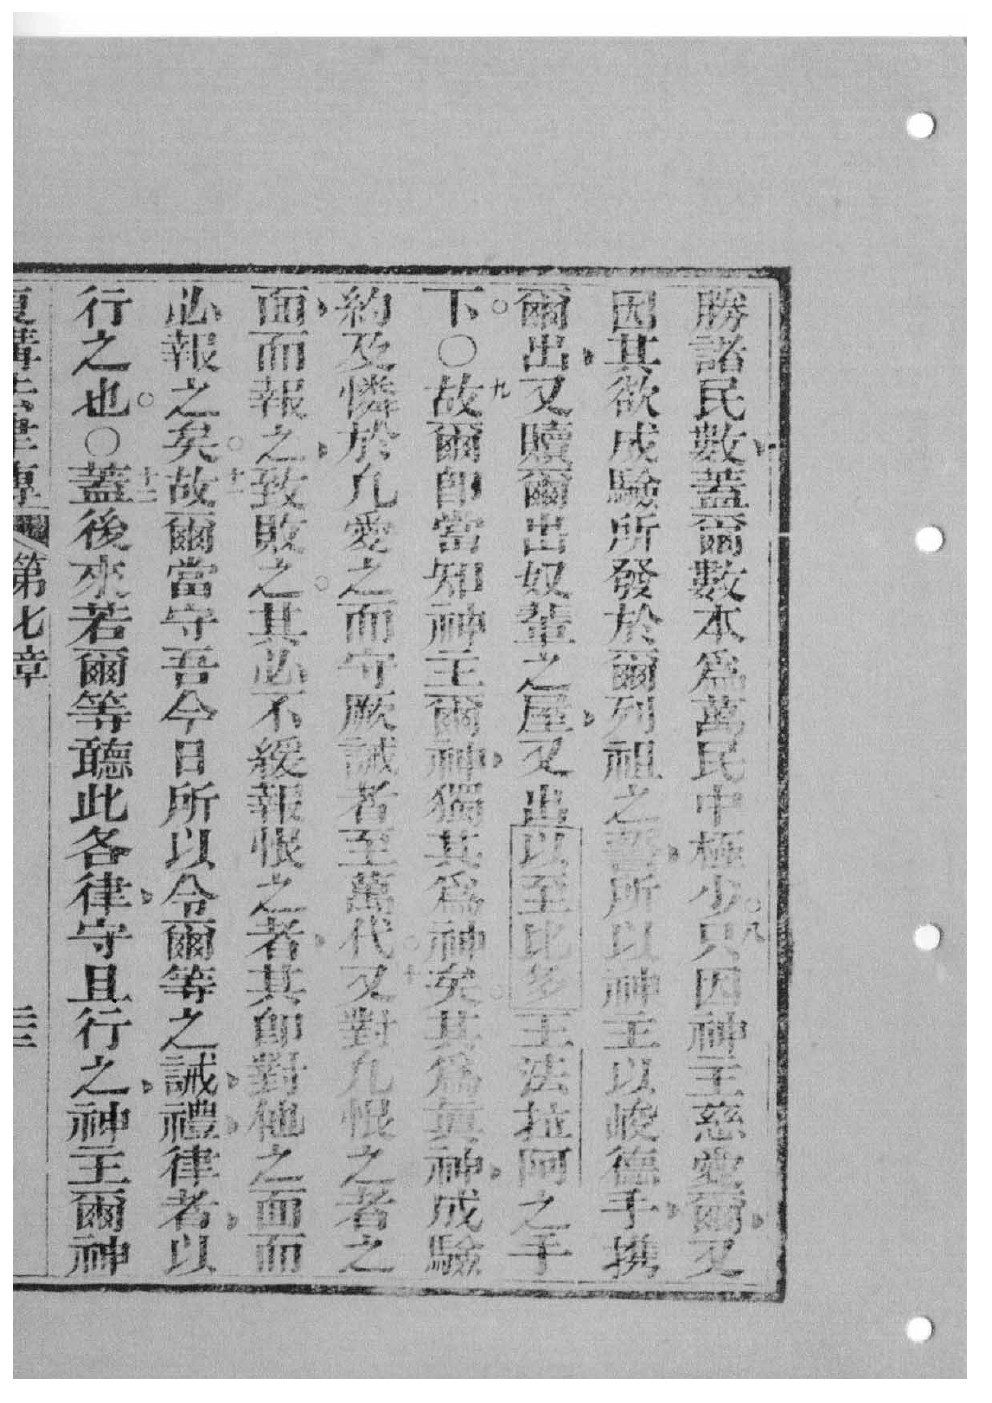 勝諸民數蓋爾數本爲萬民中極少。八只因神主慈愛爾又
因其欲成驗所發於爾列祖之誓所以神主以峻德手携
爾出又贖爾出奴輩之屋又出以至比多王法拉阿之手
下。〇九故爾卽當知神主爾神獨其爲神矣。其爲眞神成驗
約及憐於凡愛之而守厥誡者至萬代。十又對凡恨之者之
面而報之致敗之。其必不緩報恨之者其卽對他之面而
必報之矣。十一故爾當守吾今日所以令爾等之誡禮律者以
行之也。〇十二蓋後來若爾等聽此各律守且行之神主爾神
復講法律傳 第七章 二十三